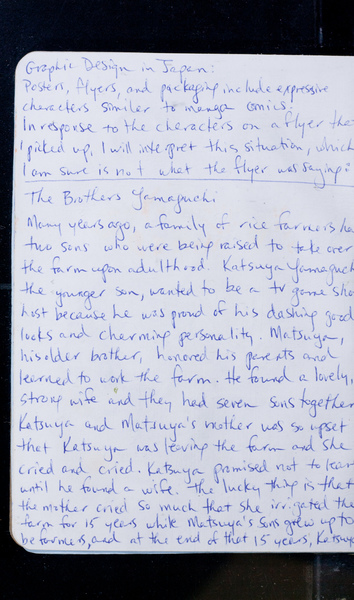 Graphic Design in Japan:
Posters, flyers, and packaging include expressive
characters similar to manga comics.
In response to the characters on a flyer that
I picked up, I will interpret this situation, which
I am sure is not what the flyer was saying:
The Brothers Yamaguchi
Many years ago, a family of rice farmers ha
two sons who were being raised to take over
the farm upon adulthood. Katsuya Yamaguch
the younger son, wanted to be a tv game sho
host because he was proud of his dashing good
looks and charming personality. Matsuya,
his older brother, honored his parents and
learned to work the farm. He found a lovely,
strong wife and they had seven sons together
Katsuya and Matsuya's mother was so upset
that Katsuya was leaving the farm and she
cried and cried. Katsuya promised not to leav
until he found a wife. The lucky thing is that
the mother cried so much that she irrigated the
farm for 15 years while Matsuya's sons grew up to
be farmers, and at the end of that 15 years, Katsuya